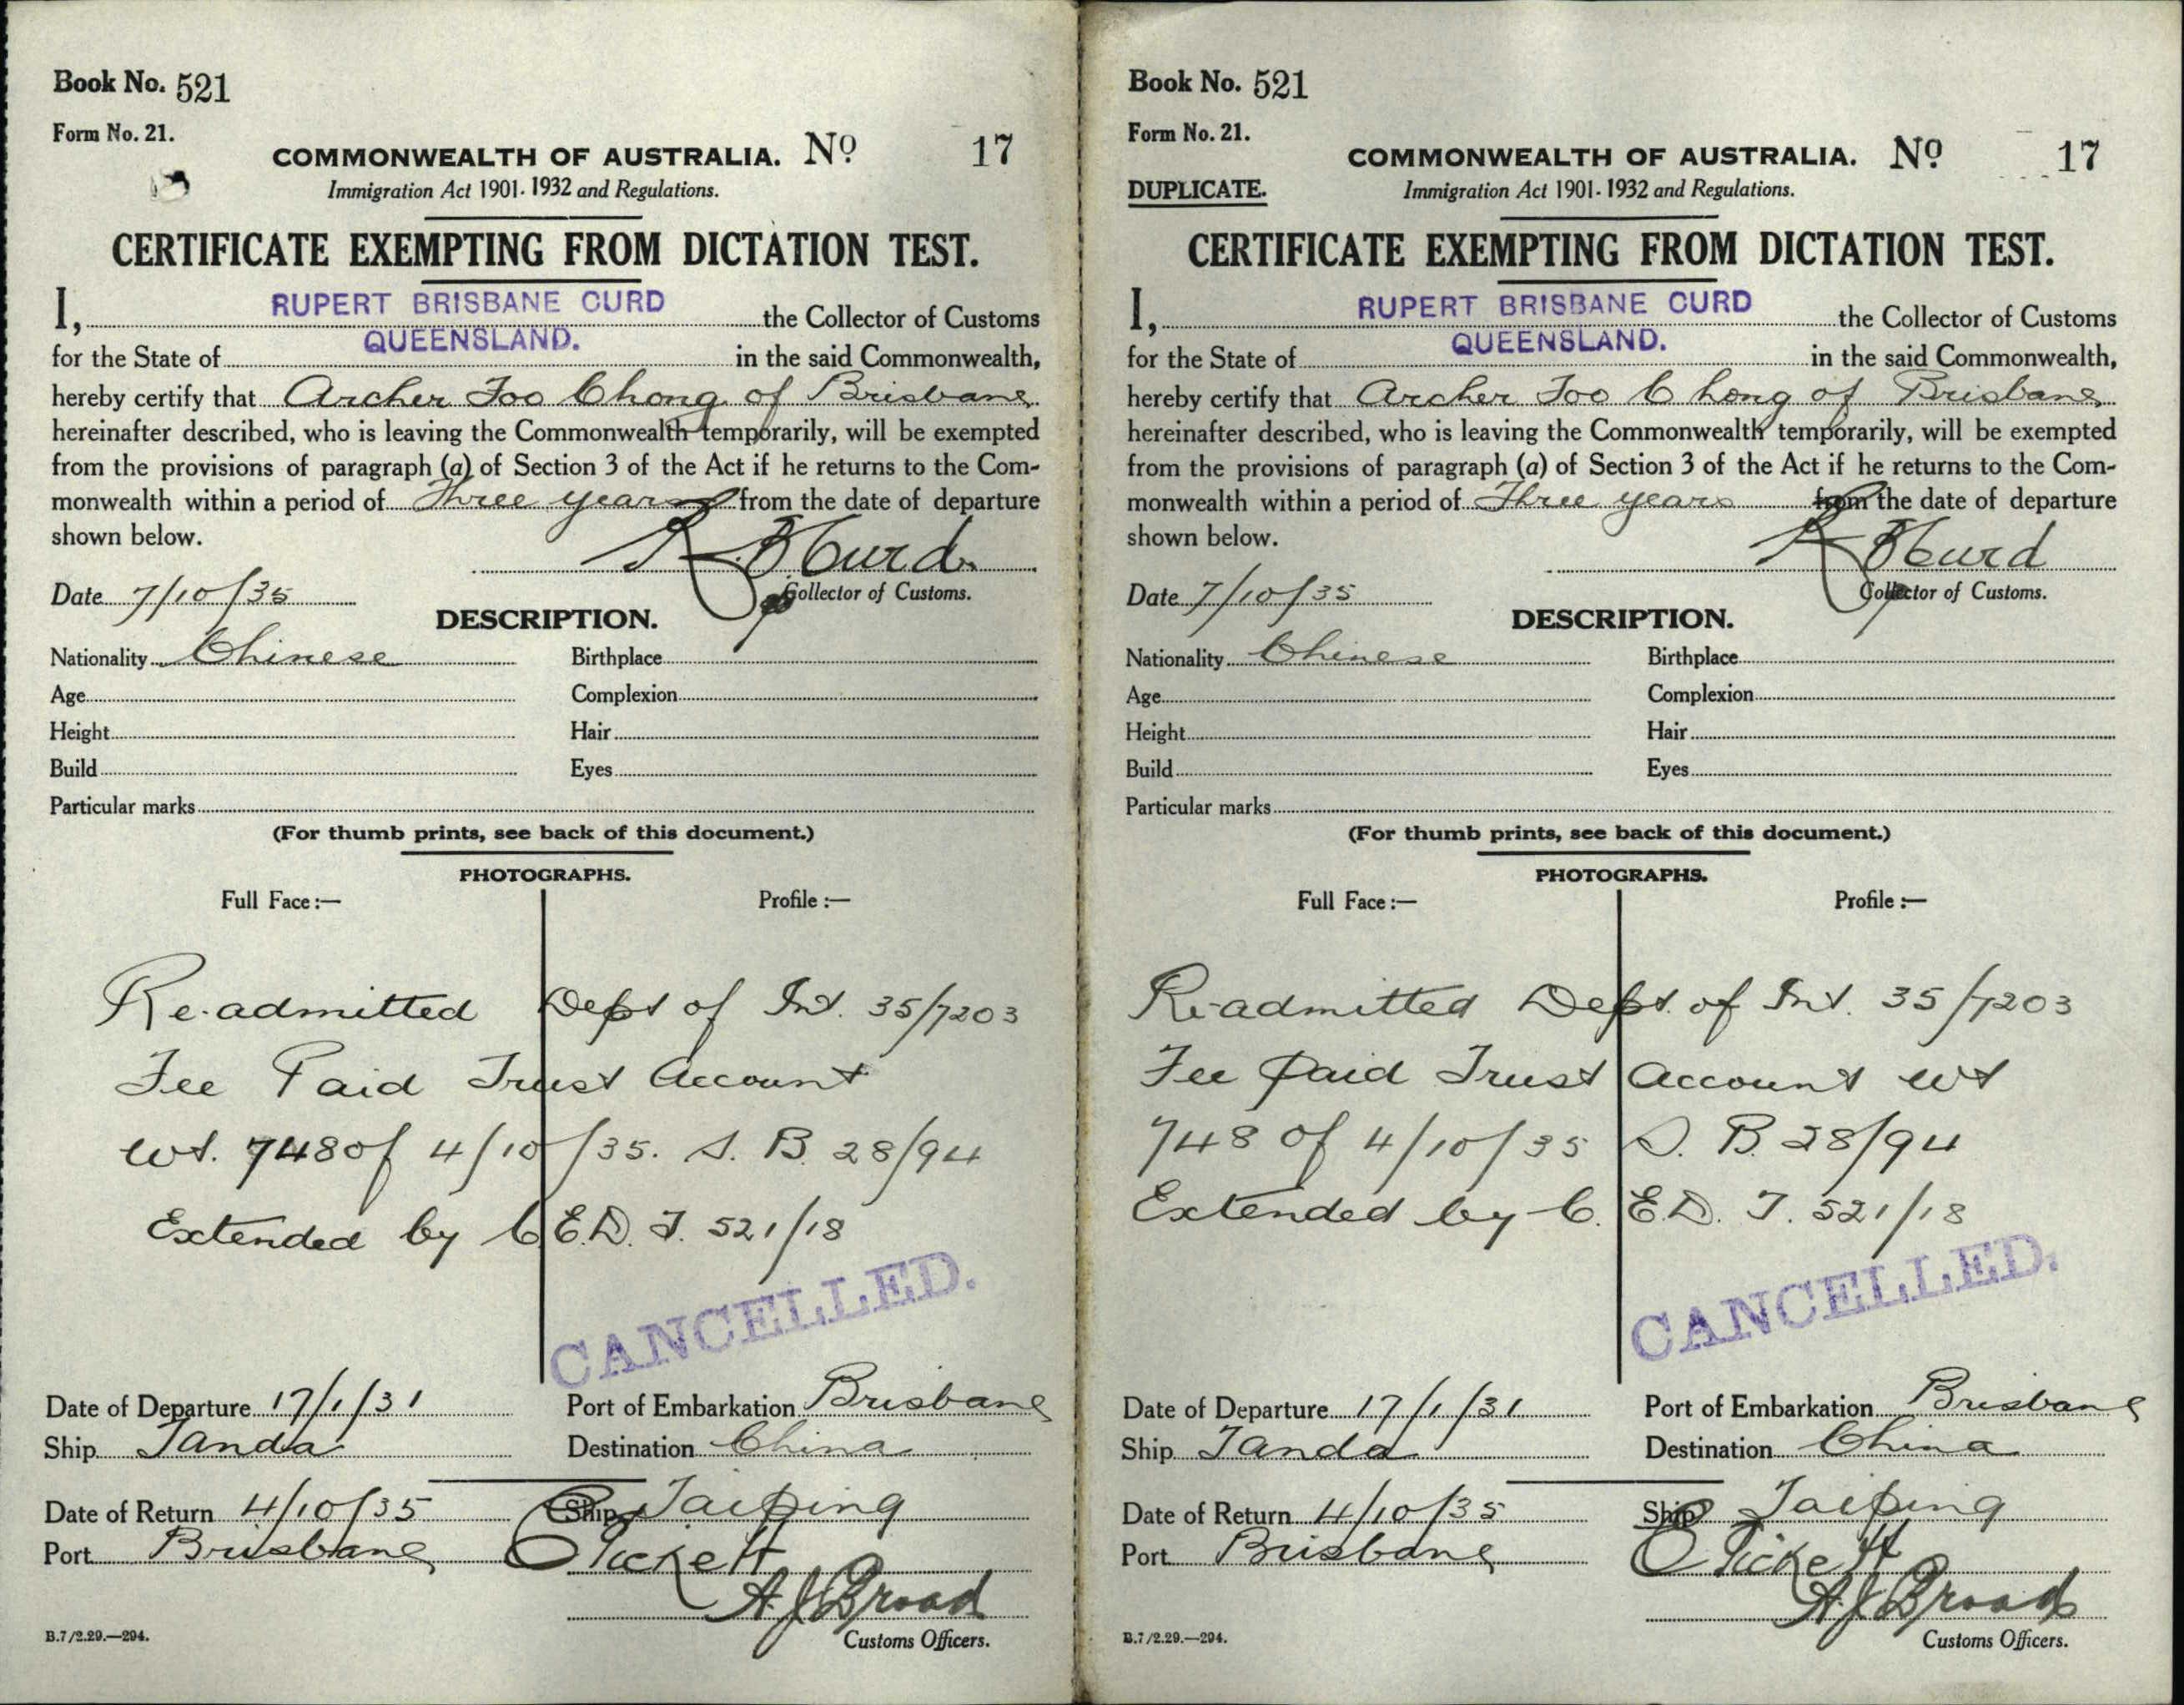 Book No. 521
Form No. 21.
COMMONWEALTH OF AUSTRALIA. Nº 17
Immigration Act 1901-1932 and Regulations.
CERTIFICATE EXEMPTING FROM DICTATION TEST.
I, RUPERT BRISBANE CURD the Collector of Customs
for the State of QUEENSLAND. in the said Commonwealth,
hereby certify that Archer Foo Chong of Brisbane
hereinafter described, who is leaving the Commonwealth temporarily, will be exempted
from the provisions of paragraph (a) of Section 3 of the Act if he returns to the Com-
monwealth within a period of Three years from the date of departure
shown below.
R B Curd
Collector of Customs.
Date 7/10/35
DESCRIPTION.
Nationality Chinese Birthplace
Age Complexion
Height Hair
Build Eyes
Particular marks
(For thumb prints, see back of this document.)
PHOTOGRAPHS.
Full Face :— Profile :—
Re-admitted Dept of Int. 35/7203
Fee Paid Trust Account
Wt. 748 of 4/10/35. S. B. 28/94
Extended by C.E.D.T. 521/18
CANCELLED.
Date of Departure 17/1/31 Port of Embarkation Brisbane
Ship Tanda Destination China
Date of Return 4/10/35 Ship Taiping
Port Brisbane C Pickett
A.J. Broad
B.7/2.29.—294. Customs Officers.
Book No. 521
Form No. 21.
COMMONWEALTH OF AUSTRALIA. Nº 17
DUPLICATE. Immigration Act 1901-1932 and Regulations.
CERTIFICATE EXEMPTING FROM DICTATION TEST.
I, RUPERT BRISBANE CURD the Collector of Customs
for the State of QUEENSLAND. in the said Commonwealth,
hereby certify that Archer Foo Chong of Brisbane
hereinafter described, who is leaving the Commonwealth temporarily, will be exempted
from the provisions of paragraph (a) of Section 3 of the Act if he returns to the Com-
monwealth within a period of Three years from the date of departure
shown below.
R B Curd
Collector of Customs.
Date 7/10/35
DESCRIPTION.
Nationality Chinese Birthplace
Age Complexion
Height Hair
Build Eyes
Particular marks
(For thumb prints, see back of this document.)
PHOTOGRAPHS.
Full Face :— Profile :—
Re-admitted Dept. of Int. 35/7203
Fee Paid Trust Account Wt
748 of 4/10/35 S. B. 28/94
Extended by C.E.D.T. 521/18
CANCELLED.
Date of Departure 17/1/31 Port of Embarkation Brisbane
Ship Tanda Destination China
Date of Return 4/10/35 Ship Taiping
Port Brisbane C Pickett
A.J. Broad
B.7/2.29.—294. Customs Officers.